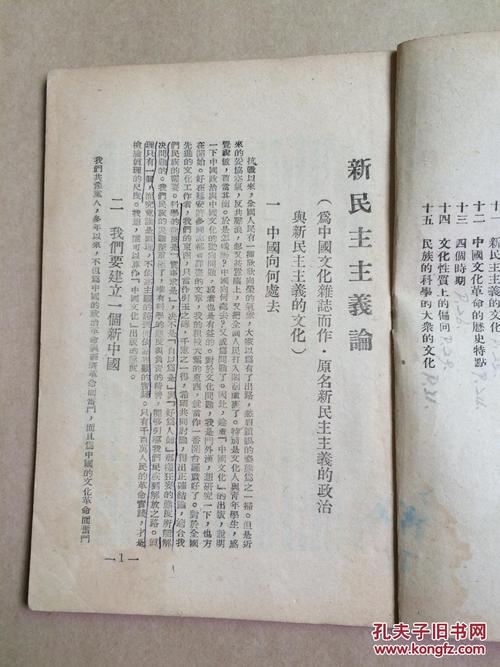 新民主主義的文化
十二 中國文化革命的歷史特點
十三 四個時期
十四 文化性質上的偏向
十五 民族的科學的大衆的文化
新民主主義論
（爲中國文化雜誌而作·原名新民主主義的政治
與新民主主義的文化）
一 中國向何處去
抗戰以來，全國人民有一種欣欣向榮的氣象，大家以爲有了出路，愁眉鎖眼的姿態爲之一掃。但是近
來的妥協空氣，反共聲浪，忽又甚囂塵上，又把全國人民打入悶葫蘆裏了。特別是文化人與青年學生，感
覺銳敏，首當其衝。於是怎麼辦？中國向何處去？又成爲問題了。因此，趁着「中國文化」的出版，說明
一下中國政治與中國文化的動向問題，或者也是有益的。對於文化問題，我是門外漢，想研究一下，也方
在開始。好在延安許多同志已有詳盡的文章，我的粗枝大葉的東西，就當作一番開台鑼鼓好了。對於全國
先進的文化工作者，我們的東西，只當作引玉之磚，千慮之一得，希望共同討論，得出正確結論，適合我
們民族的需要。科學的態度是「實事求是」，決不是「自以爲是」與「好爲人師」那樣狂妄的態度所能解
決問題的。我們民族的災難深重極了，唯有科學的態度與負責的精神，能够引導我們民族到解放之路。眞
理只有一個，而究竟誰是發現了眞理，不依靠主觀的誇張，而依靠客觀的實踐。只有千百萬人民的革命實踐，才是
檢驗眞理的尺度。我想，這可以算作「中國文化」出版的態度。
二 我們要建立一個新中國
我們共產黨人，多年以來，不但爲中國的政治革命與經濟革命而奮鬥，而且爲中國的文化革命而奮鬥
—1—
孔夫子旧书网
www.kongfz.com